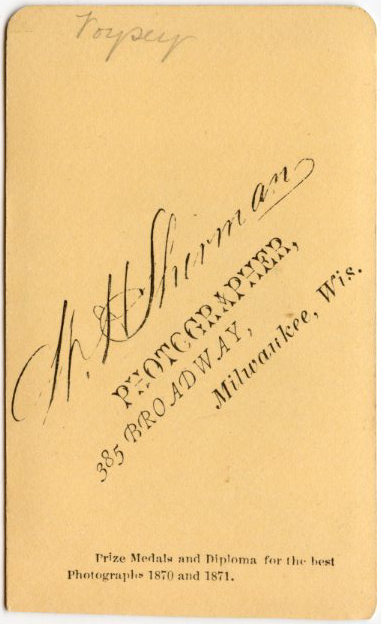 Voysey
W. H. Sherman
PHOTOGRAPHER,
385 BROADWAY,
Milwaukee, Wis.
Prize Medals and Diploma for the best
Photographs 1870 and 1871.